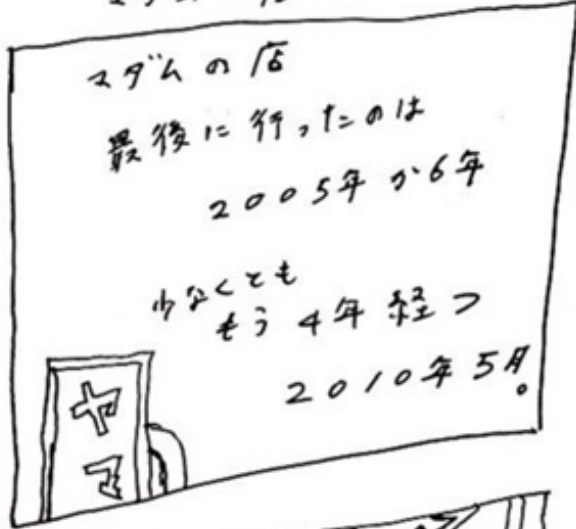 マダムの店
最後に行ったのは
2005年か6年
少なくとも
もう4年経つ
2010年5月。
ヤマ